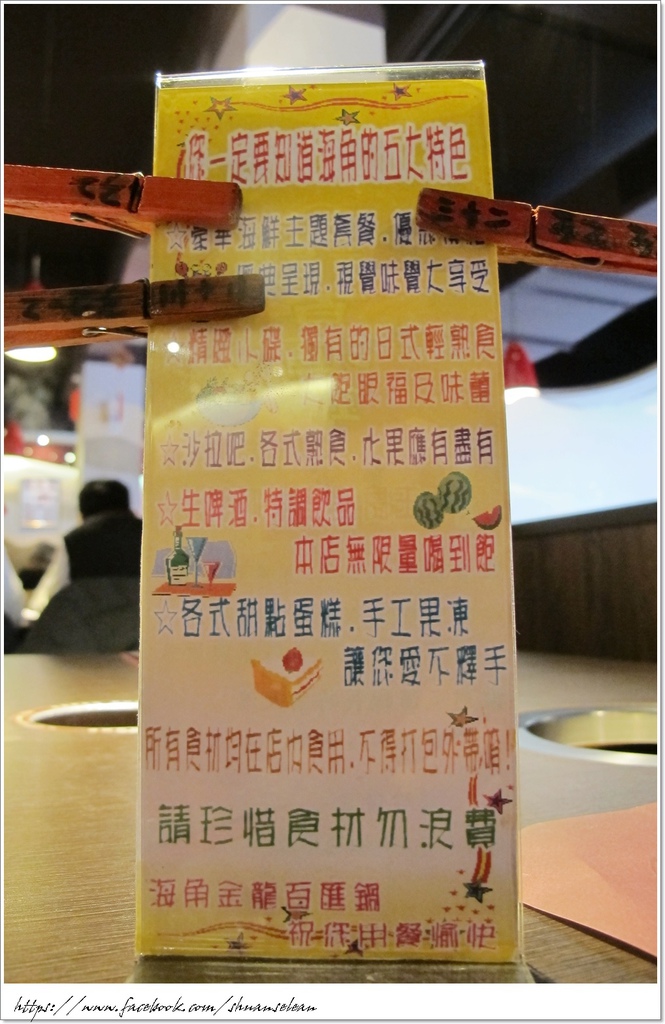 您一定要知道海角的五大特色
☆豪華海鮮主題套餐.優
呈現.視覺味覺大享受
☆精緻小碟.獨有的日式輕熟食
大飽眼福及味蕾
☆沙拉吧.各式熟食.水果應有盡有
☆生啤酒.特調飲品
本店無限量喝到飽
☆各式甜點蛋糕.手工果凍
讓您愛不釋手
所有食材均在店內食用.不得打包外帶喲!
請珍惜食材勿浪費
海角金龍百匯鍋
祝您用餐愉快
三十二
https://www.facebook.com/shuanselean